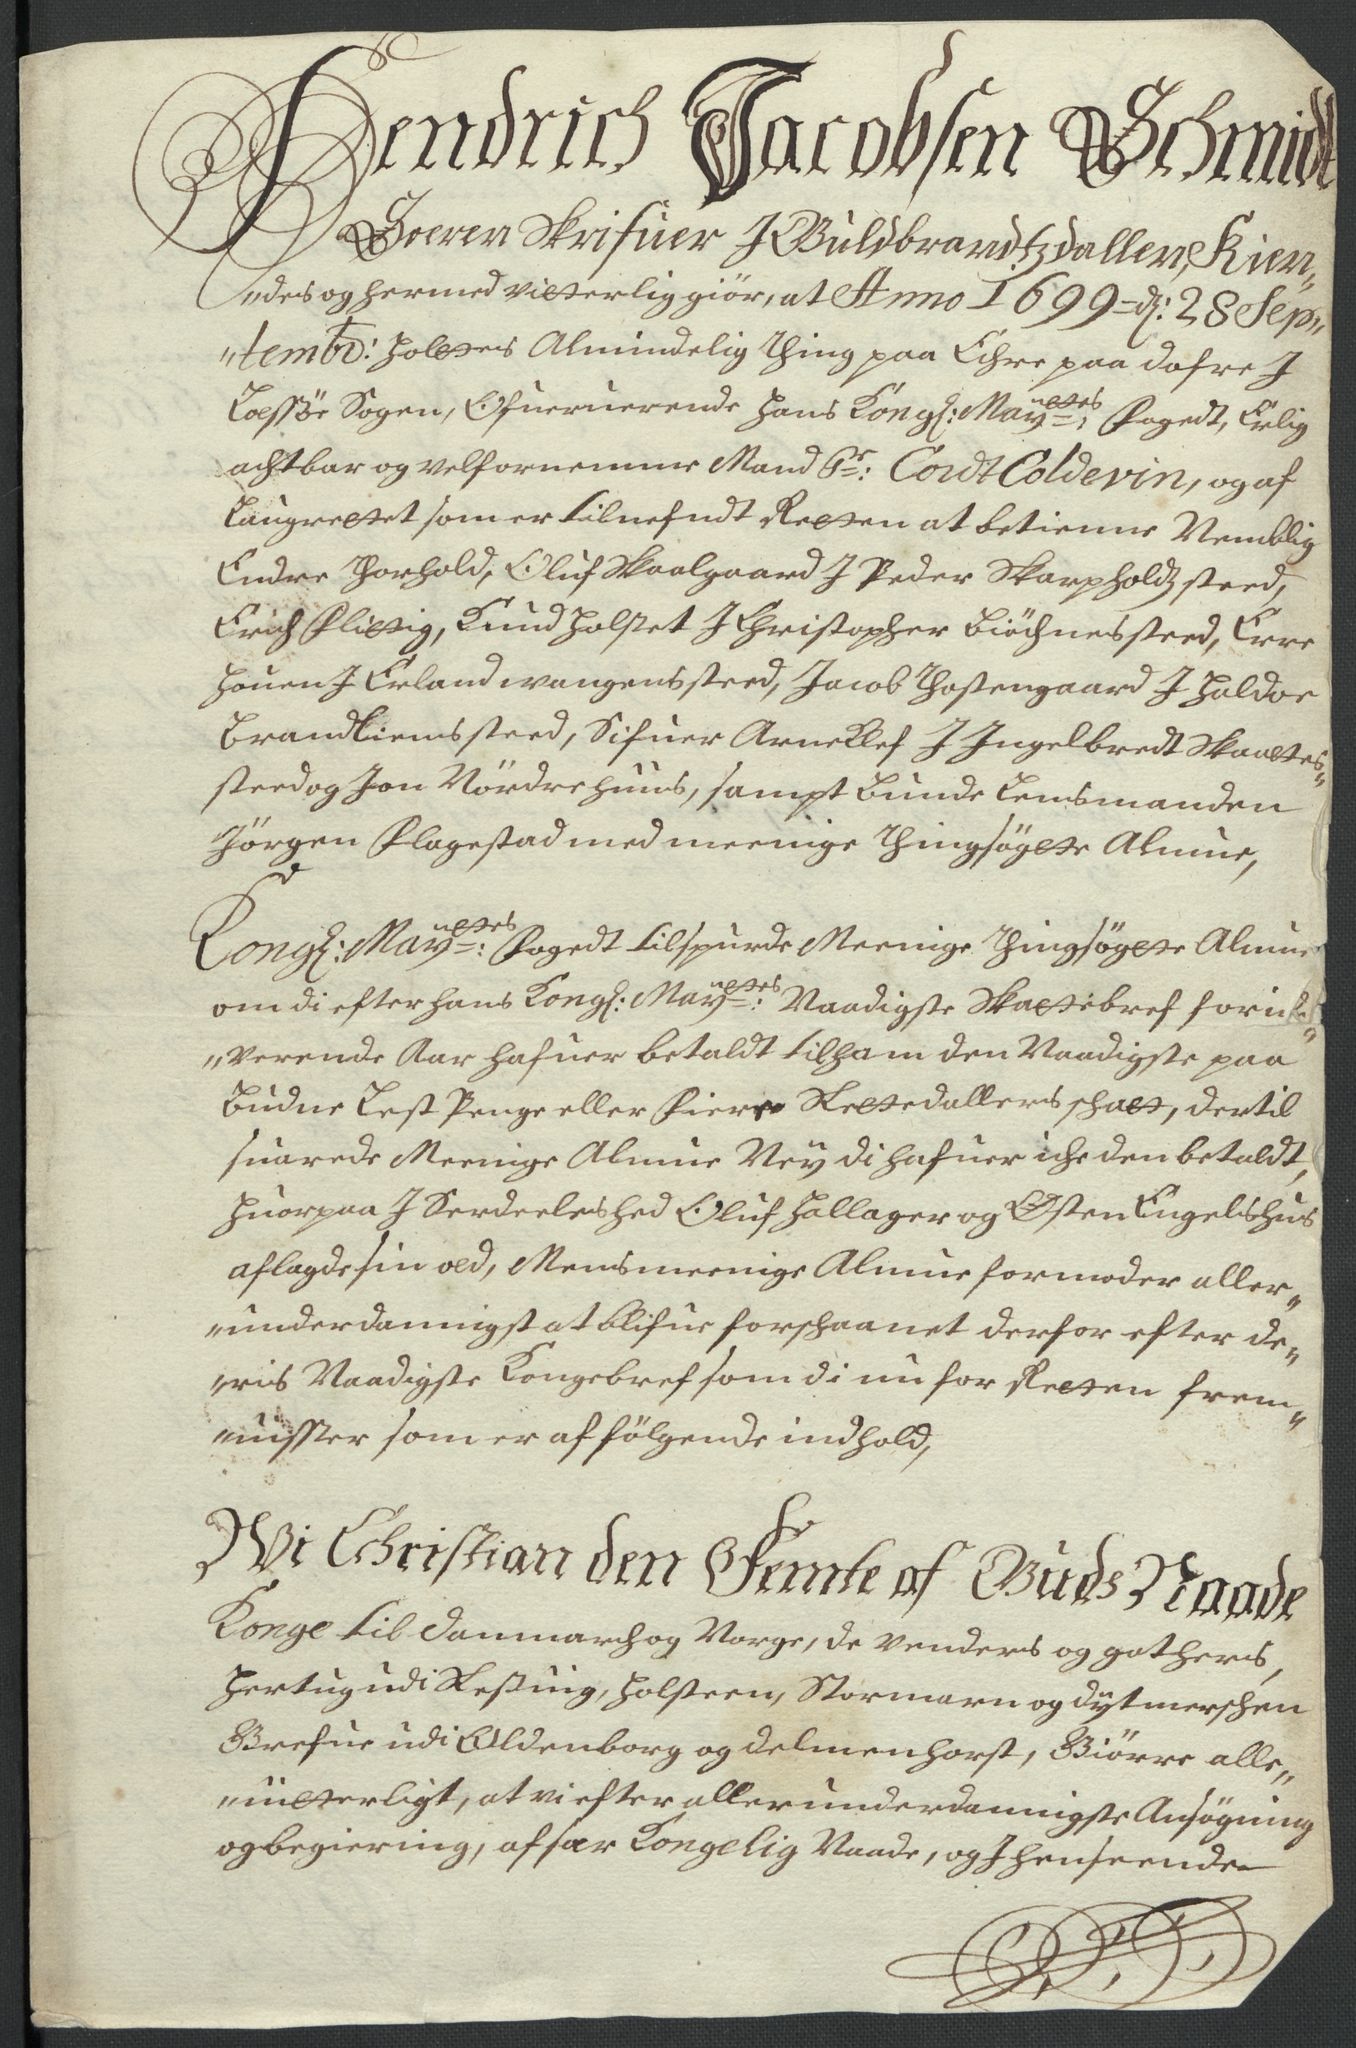 Hendrich Jacobsen Schmidt
Soeren Skrifuer J Guldbrandtzdallen, Kien„
„des og hermed vitterlig giör, at Anno 1699 = dz: 28 Sep„
„tembr: holtes Almindelig Thing paa Echre paa dofre J
Lessöe Sogen, Ofueruerende hans Kongl: Mayttes: Fogedt, Erlig
achtbar og velfornemme Mand Sr: Cordt Coldevin, og af
Laugrettet som er tilnefndt Retten at betienne Nemblig
Endre Thorhold, Oluf Skaalgaard J Peder Skarpholdz steed,
Erich Flittig, Knud Holset J Christopher Biöchnes steed, Erre
Houen J Erland wangens steed, Jacob Thoftengaard J Haldor
Brandliems steed, Sifuer Arneklef J Ingelbredt Skaattes„
steed og Jon Nördrehuus, sampt Bunde Lensmanden
Jörgen Flagestad med meenige Thingsögte Almue,
Kongl: Mayttes: Fogedt tilspurde Meenige Thingsögte Almue
om di efter hans Kongl: Mayttes: Naadigste Skattebref for
„verende Aar hafuer betaldt til ham den Naadigste paa
Budne Lest Penge eller Fiere Slettedallers schatt, dertil
suarede Meenige Almue Ney di hafuer iche den betaldt,
huorpaa J Serdeeleshed Oluf Hallager og Östen Engelshus
aflagde sin oed, Mens meenige Almue formoder aller„
„underdannigst at blifue forschaanet derfor efter de„
„ris Naadigste Kongebref som di nu for Retten frem„
„uisster som er af fölgende indhold,
Wi Christian den Femte af Guds Naade
Konge til Danmarch og Norge, de Venders og gothers,
Hertug udi Slesuig, Holsteen, Stormarn og dytmerschen
Grefue udi Oldenborg og delmenhorst, Giörre alle„
„uitterligt, at vi efter allerunderdannigste Ansögning
og begiering, af sær Kongelig Naade, og J henseende